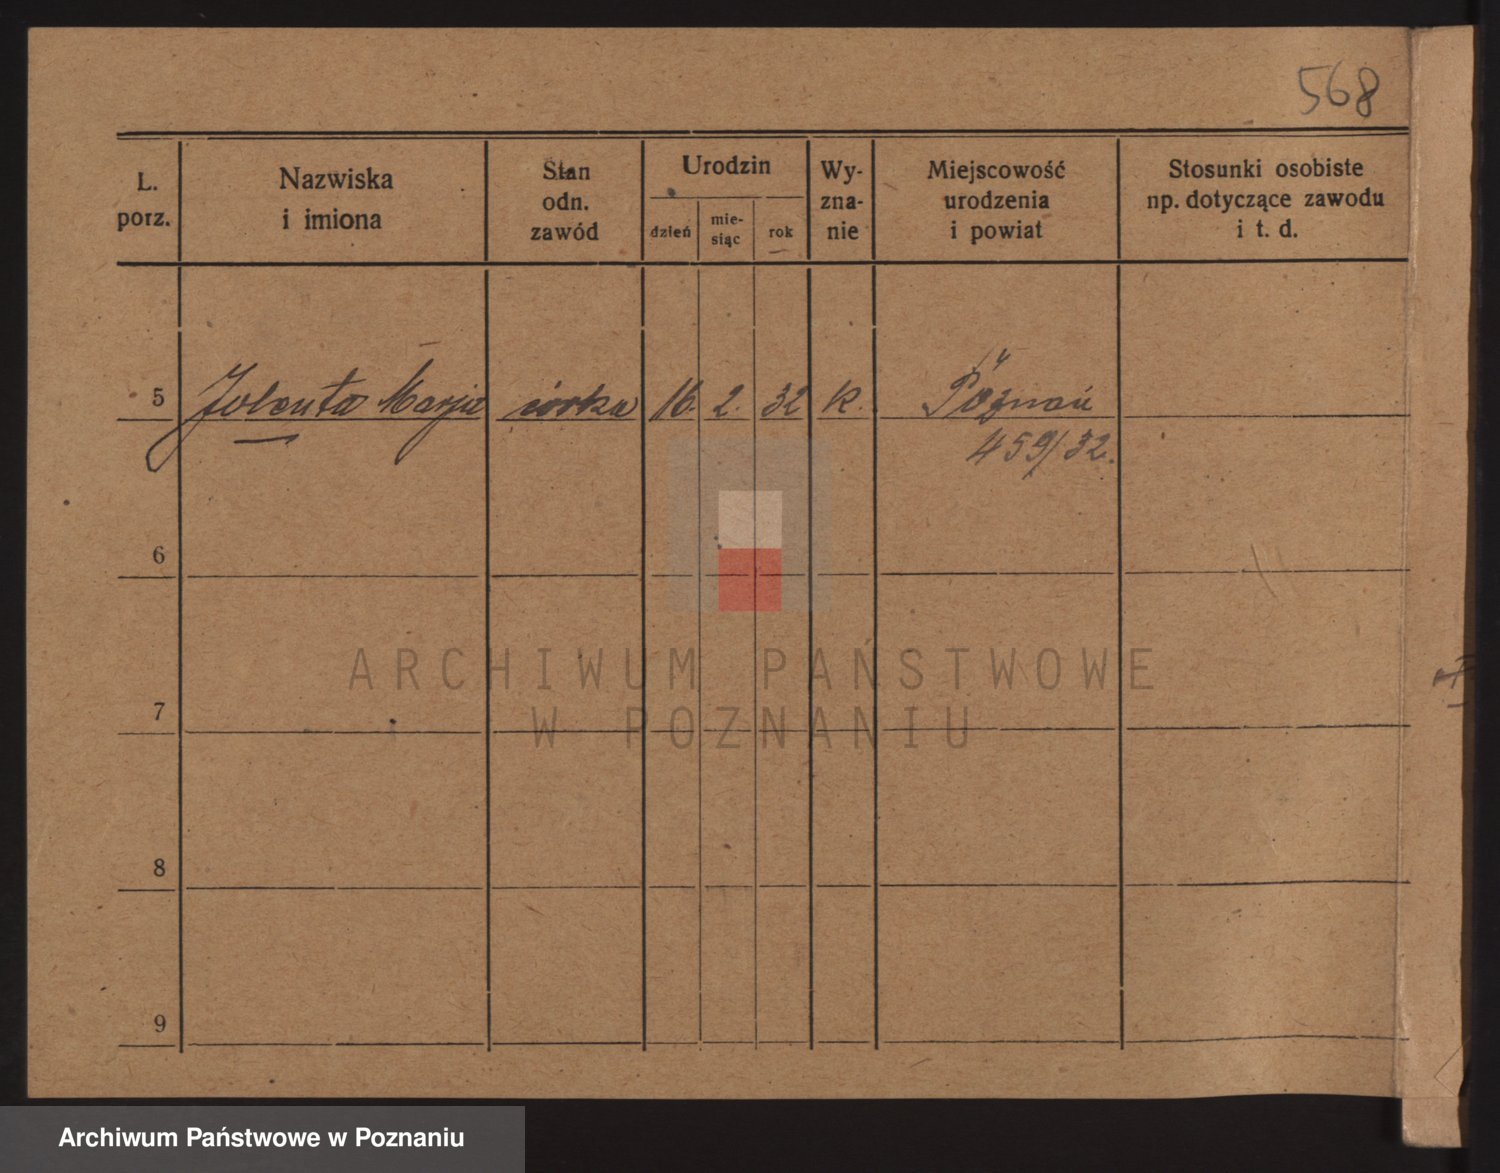 568
L. porz. Nazwiska i imiona Stan odn. zawód Urodzin dzień mie- siąc rok Wy- zna- nie Miejscowość urodzenia i powiat Stosunki osobiste np. dotyczące zawodu i t. d.
5 Jolenta Marja córka 16. 2. 32 k. Poznań
459/32.
6
7
8
9
ARCHIWUM PAŃSTWOWE
W POZNANIU
Archiwum Państwowe w Poznaniu